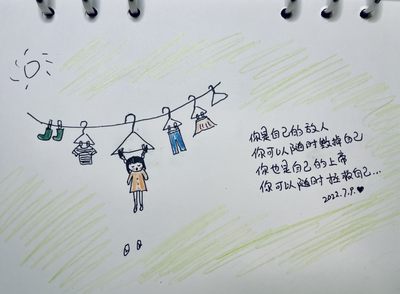 你是自己的敌人
你可以随时毁掉自己
你也是自己的上帝
你可以随时拯救自己...
2022.7.9.♥